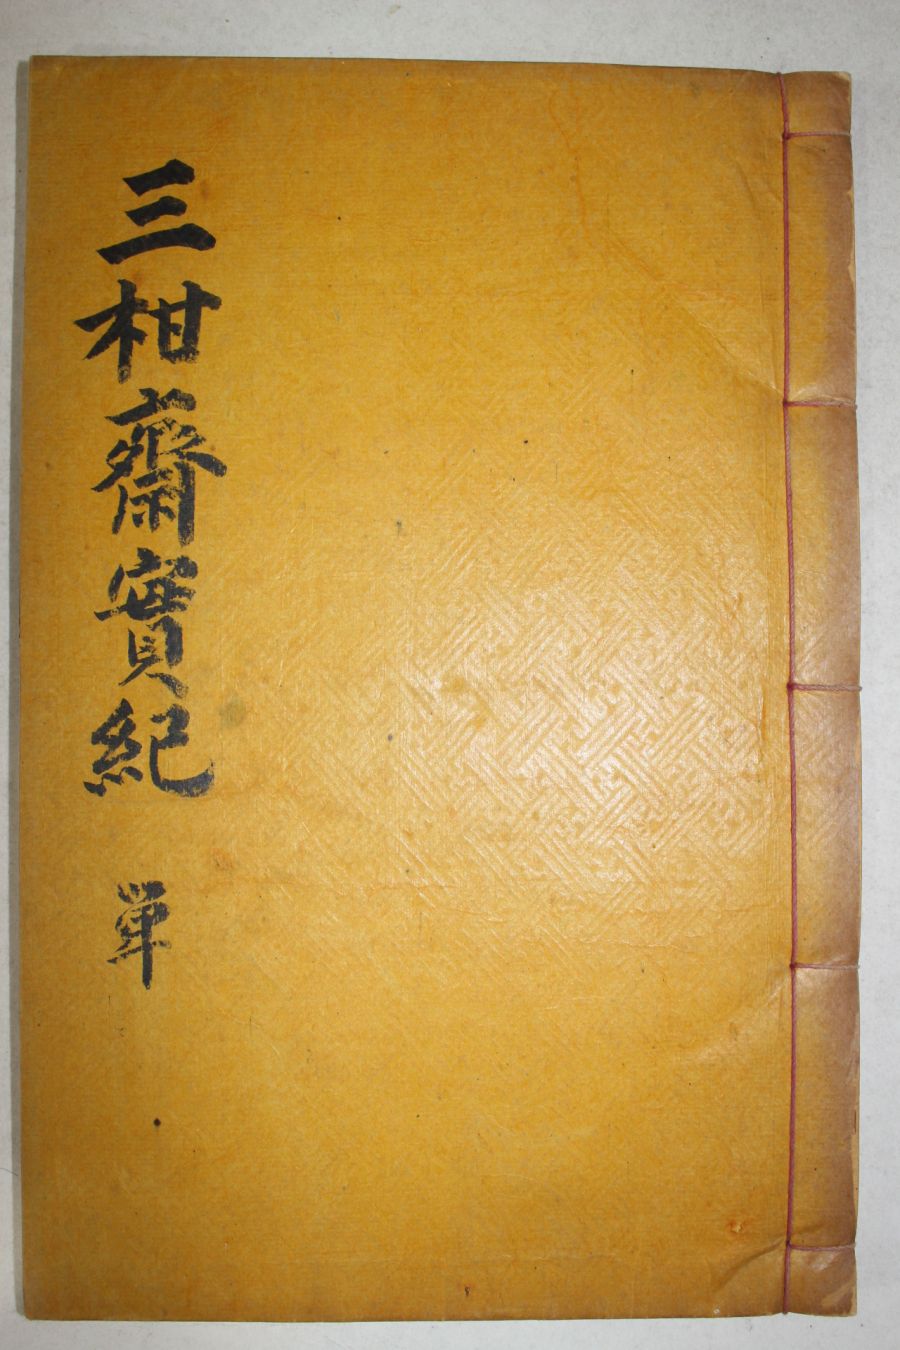 三柑齋實紀 單